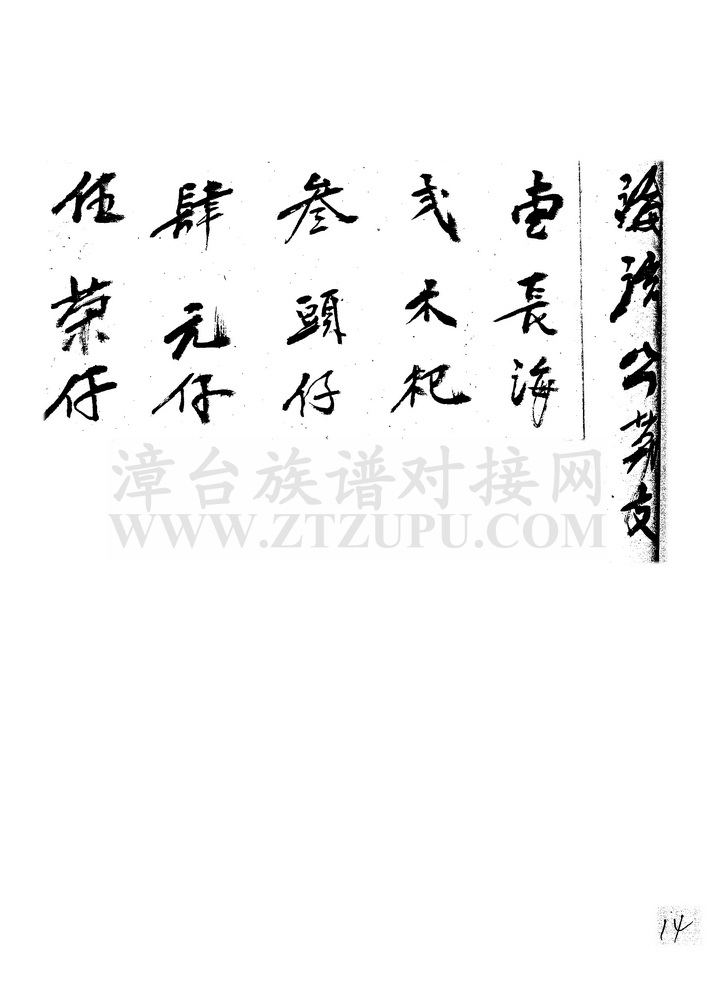 公苐支
壹 長海
弍 木杞
叁 頭仔
肆 元仔
伍 榮仔
漳台族谱对接网
WWW.ZTZUPU.COM
14